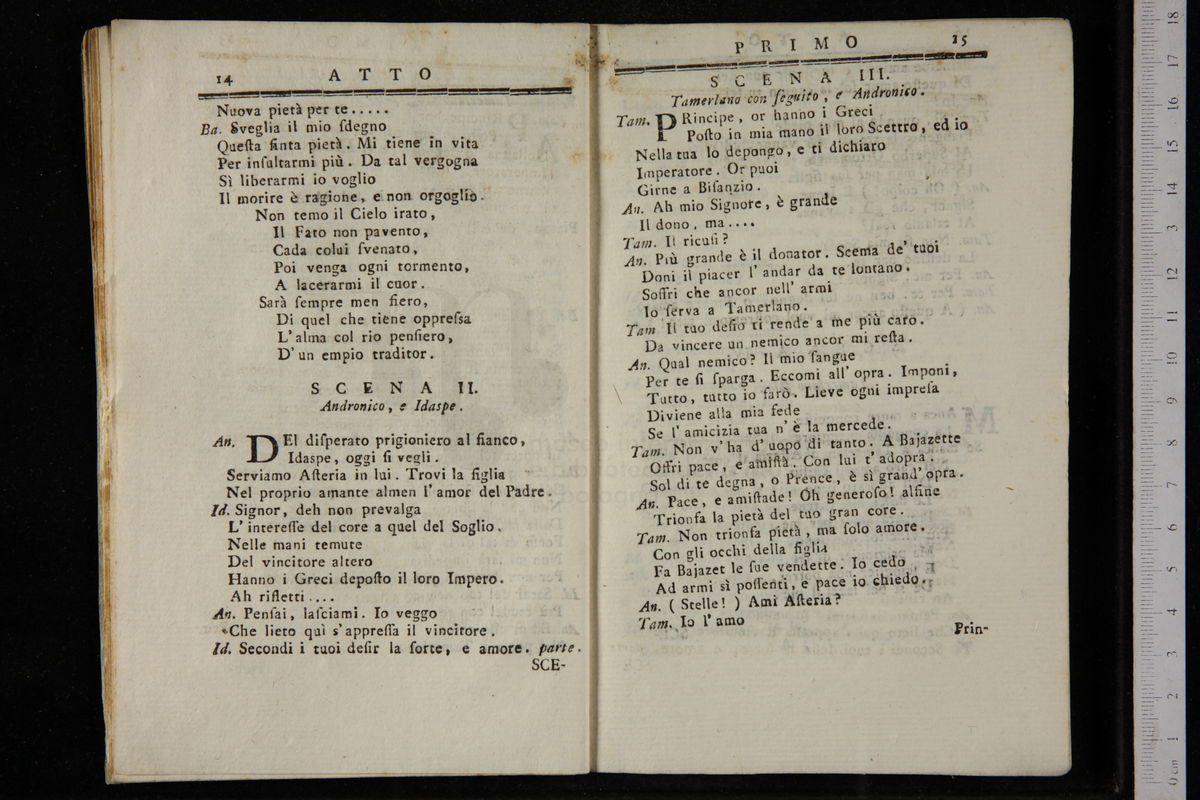 14 ATTO
Nuova pietà per te.....
Ba. Sveglia il mio ſdegno
Queſta finta pietà. Mi tiene in vita
Per inſultarmi più. Da tal vergogna
Sì liberarmi io voglio
Il morire è ragione, e non orgoglio.
Non temo il Cielo irato,
Il Fato non pavento,
Cada colui ſvenato,
Poi venga ogni tormento,
A lacerarmi il cuor.
Sarà ſempre men fiero,
Di quel che tiene oppreſsa
L'alma col rio penſiero,
D'un empio traditor.
SCENA II.
Andronico, e Idaspe.
An. DEl diſperato prigioniero al fianco,
Idaspe, oggi ſi vegli.
Serviamo Aſteria in lui. Trovi la figlia
Nel proprio amante almen l'amor del Padre.
Id. Signor, deh non prevalga
L'intereſſe del core a quel del Soglio.
Nelle mani temute
Del vincitore altero
Hanno i Greci depoſto il loro Impero.
Ah rifletti....
An. Penſai, laſciami. Io veggo
Che lieto quì s'appreſſa il vincitore.
Id. Secondi i tuoi deſir la ſorte, e amore. parte.
SCE-
PRIMO 15
SCENA III.
Tamerlano con ſeguito, e Andronico.
Tam. PRincipe, or hanno i Greci
Poſto in mia mano il loro Scettro, ed io
Nella tua lo depongo, e ti dichiaro
Imperatore. Or puoi
Girne a Biſanzio.
An. Ah mio Signore, è grande
Il dono, ma....
Tam. Il ricuſi?
An. Più grande è il donator. Scema de' tuoi
Doni il piacer l'andar da te lontano.
Soffri che ancor nell' armi
Io ſerva a Tamerlano.
Tam Il tuo deſio ti rende a me più caro.
Da vincere un nemico ancor mi reſta.
An. Qual nemico? Il mio ſangue
Per te ſi ſparga. Eccomi all' opra. Imponi,
Tutto, tutto io farò. Lieve ogni impreſa
Diviene alla mia fede
Se l'amicizia tua n'è la mercede.
Tam. Non v'ha d'uopo di tanto. A Bajazette
Offri pace, e amiſtà. Con lui t'adopra.
Sol di te degna, o Prence, è sì grand' opra.
An. Pace, e amiſtade! Oh generoſo! alfine
Trionfa la pietà del tuo gran core.
Tam. Non trionfa pietà, ma ſolo amore.
Con gli occhi della figlia
Fa Bajazet le ſue vendette. Io cedo
Ad armi sì poſſenti, e pace io chiedo.
An. (Stelle!) Ami Aſteria?
Tam. Io l'amo
Prin-